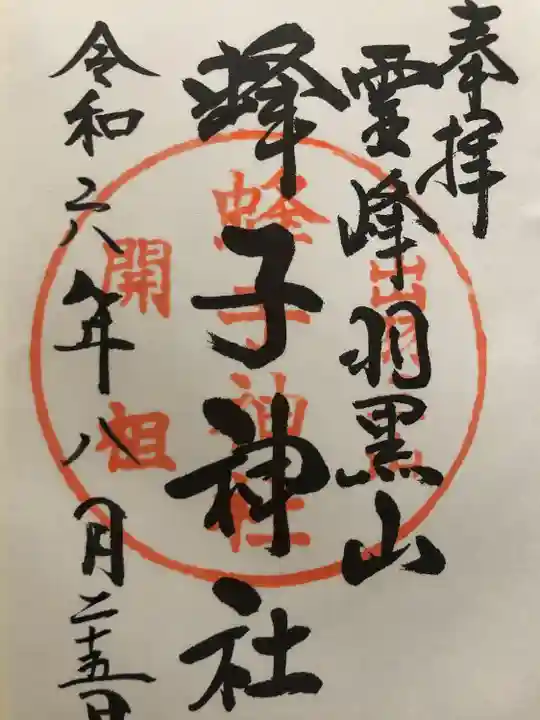 奉拝
霊峰羽黒山
蜂子神社
令和六年八月二十五日
蜂子神社
開祖